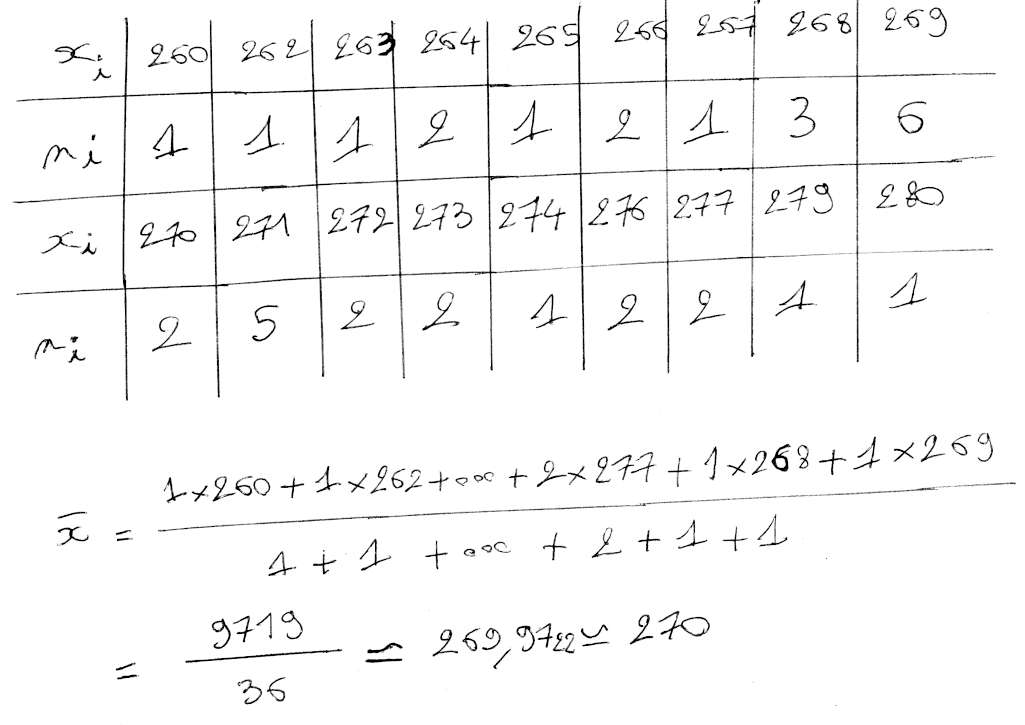 xᵢ 260 262 263 264 265 266 267 268 269
nᵢ 1 1 1 2 1 2 1 3 6
xᵢ 270 271 272 273 274 276 277 279 280
nᵢ 2 5 2 2 1 2 2 1 1
x̄ = (1×260 + 1×262 + ... + 2×277 + 1×268 + 1×269) / (1 + 1 + ... + 2 + 1 + 1)
= 9719 / 36 ≃ 269,9722 ≃ 270